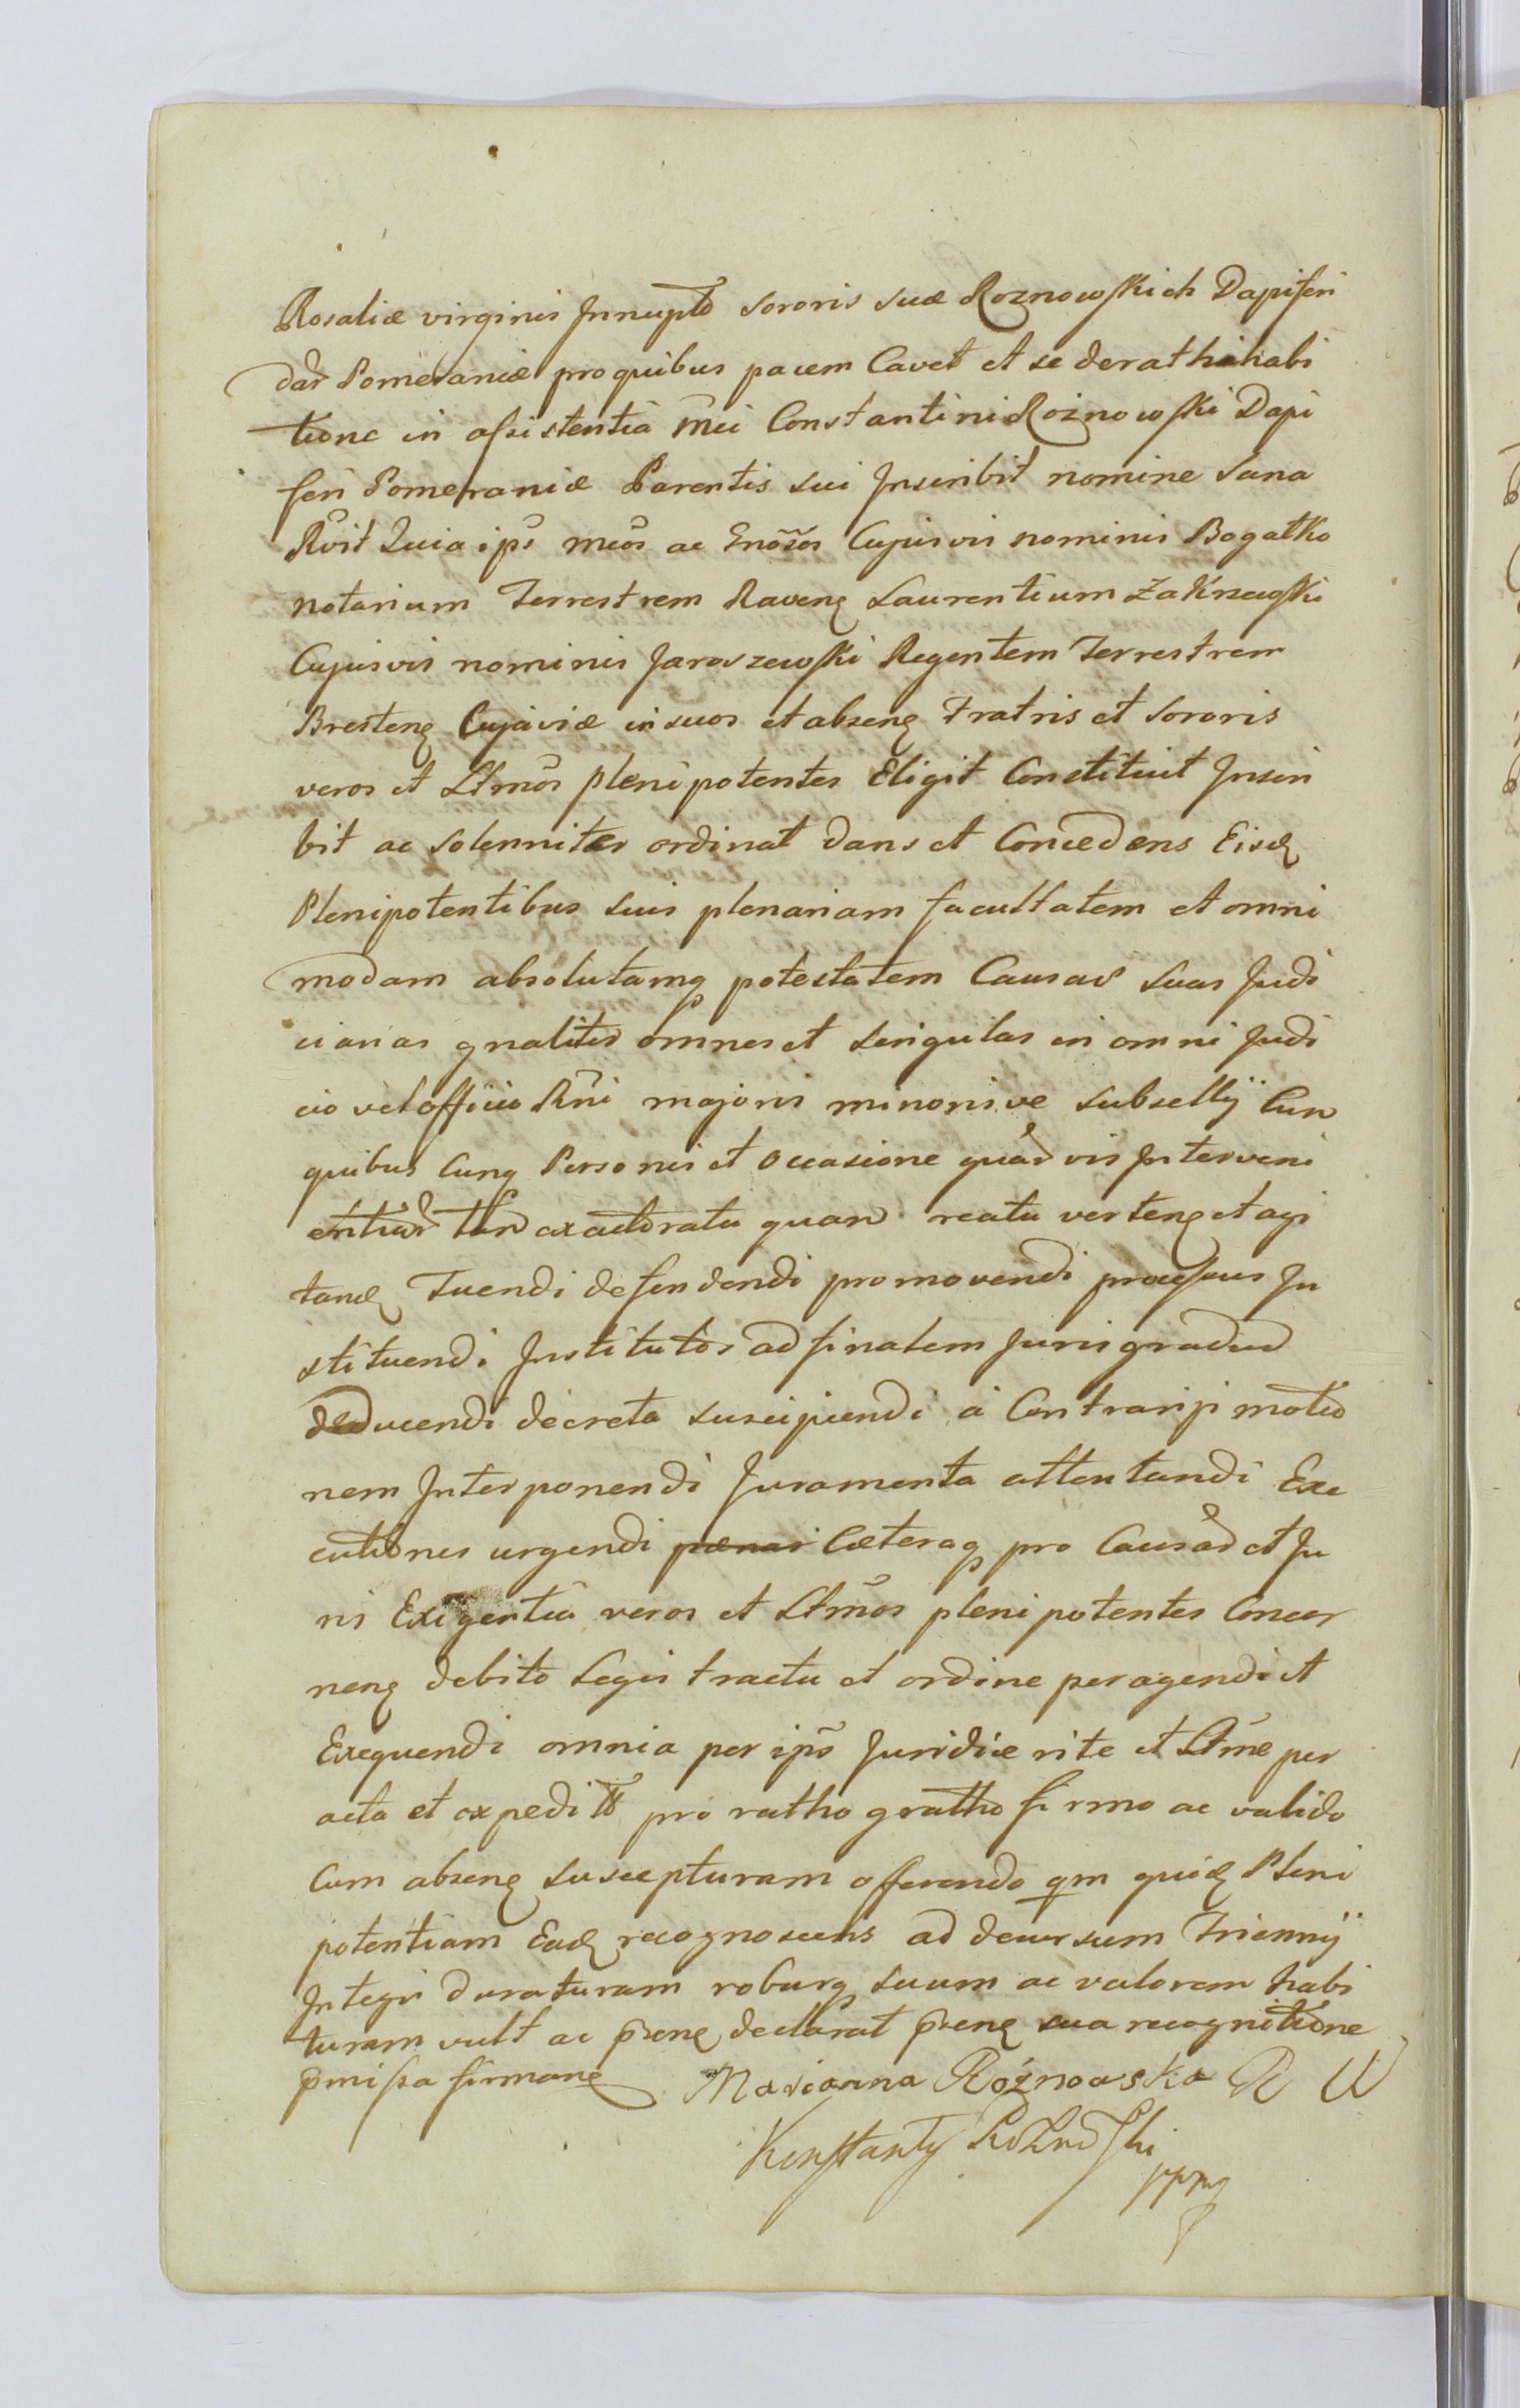 Rosaliæ virginis Innuptæ sororis suæ Roznowskich Dapiferi
dar Pomeraniæ pro quibus pacem Cavet et se de rathihabi
tione in assistentia Mci Constantini Rożnowski Dapi
feri Pomeraniæ Parentis sui Inscribit nomine sana
Rvit Quia ips Mcos ac Gnosos Cujusvis nominis Bogatko
Notarium Terrestrem Ravenȩ Laurentium Zakrzewski
Cujusvis nominis Jaroszewski Regentem Terrestrem
Brestenȩ Cujaviæ in suos et absenȩ Fratris et Sororis
veros et Ltmos plenipotentes Eligit Constituit Inscri
bit ac solenniter ordinat dans et Concedens Eisdȩ
Plenipotentibus suis plenariam facultatem et omni
modam absolutamqȝ potestatem Causas suas Judi
ciarias gnaliter omnes et singulas in omni Judi
cio vel officio Rni majoris minorisve subsellij Cum
quibus cunqȝ Personis et occasione quarvis Interveni
entiar tam ex actoratu quam reatu vertenȩ et agi
tandȩ Tuendi defendendi promovendi processus In
stituendi Institutos ad finalem Juris gradum
deducendi decreta suscipiendi à Contrarijs motio
nem Interponendi Juramenta attentandi Exe
cutiones urgendi pænas Cæteraqȝ pro Causar et Ju
ris Exigentia veros et Ltmos plenipotentes Concer
nenȩ debito Legis tractu et ordine peragendi et
Exequendi omnia per ips Juridice rite et Ltme per
acta et expedita pro ratho gratho firmo ac valido
Cum absenȩ suscepturam offerendo qm quidȩ Pleni
potentiam Eadȩ recognoscens ad decursum Triennij
Integri duraturam roburqȝ suum ac valorem habi
turam vult ac psenȩ declarat psenȩ sua recognitione
pmissa firmanȩ Marianna Rożnowska R W
Konstanty Rożnowski
ppmȩ